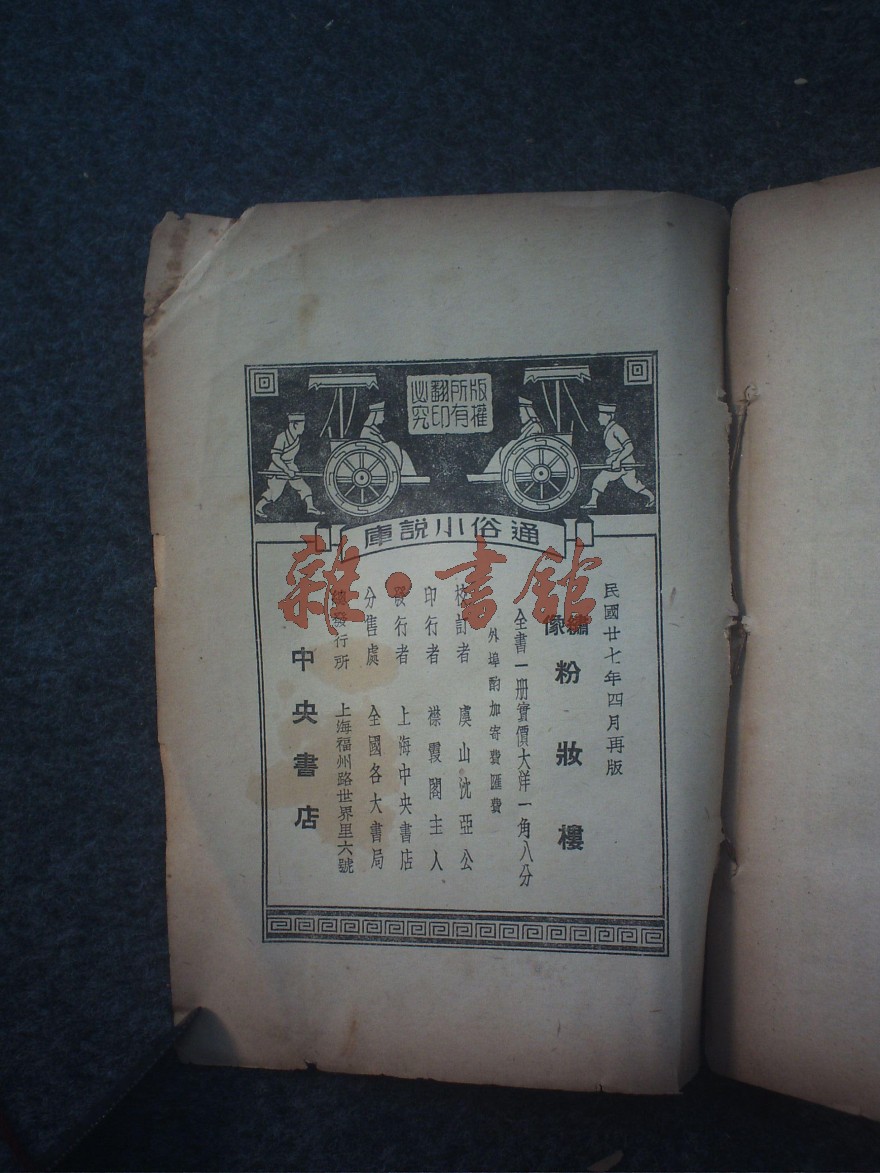 版權所有翻印必究
通俗小說庫
民國廿七年四月再版
繡像粉妝樓
全書一册實價大洋一角八分
外埠酌加寄費匯費
校訂者 虞山沈亞公
印行者 襟霞閣主人
發行者 上海中央書店
分售處 全國各大書局
總發行所 上海福州路世界里六號
中央書店
雜·書館